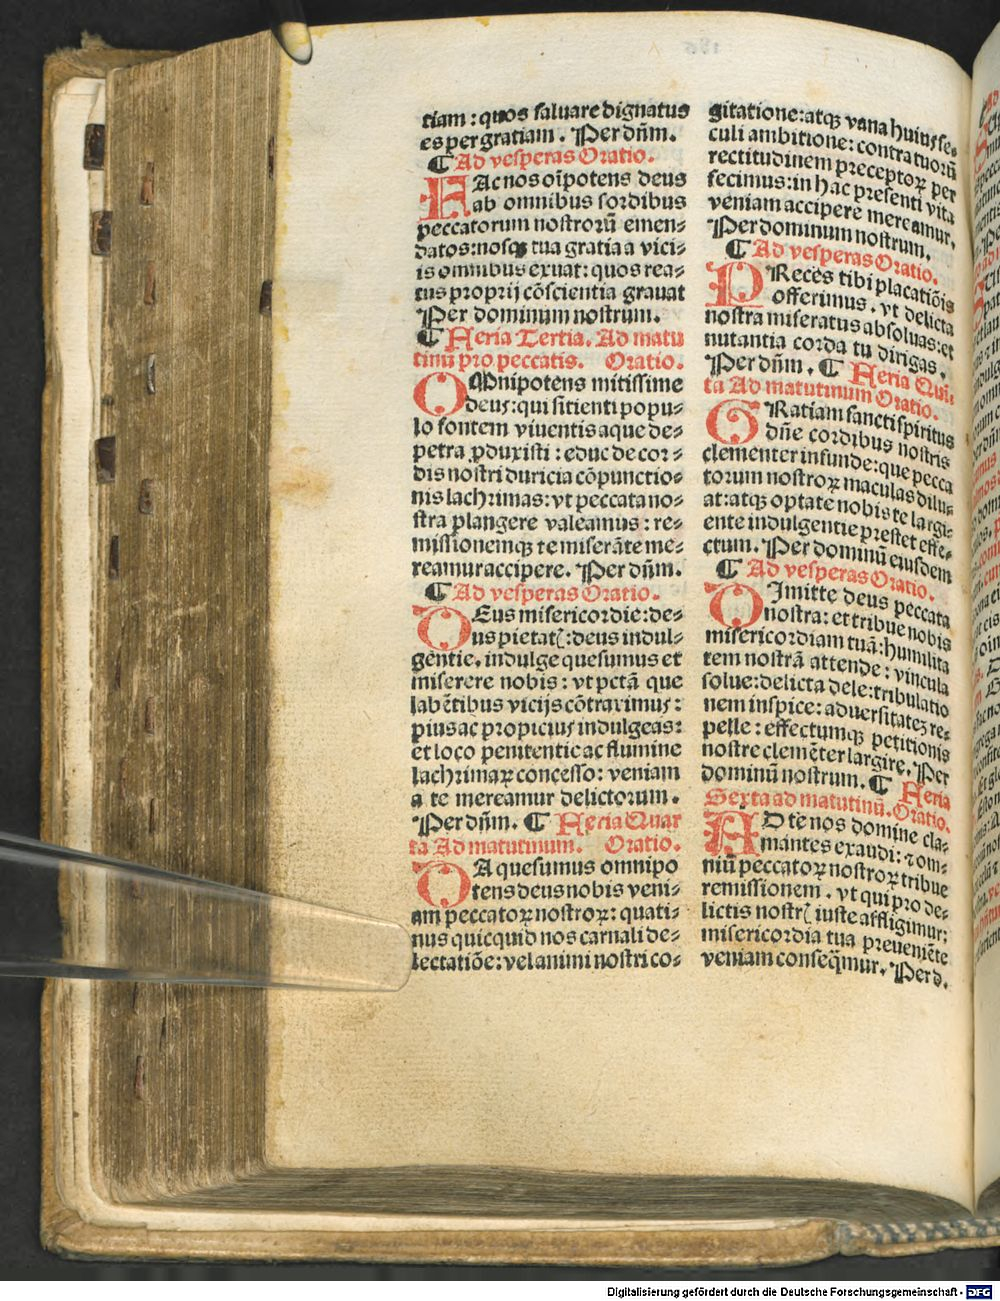 tiam : quos saluare dignatus
es per gratiam . Per dn̄m.
¶ Ad vesperas Oratio.
FAc nos oīpotens deus
ab omnibus sordibus
peccatorum nostrorū emen⸗
datos: nosqꝫ tua gratia a vici⸗
is omnibus exuat: quos rea⸗
tus proprij cōscientia grauat
Per dominum nostrum.
¶ Feria Tertia. Ad matu
tinū pro peccatis. Oratio.
OMnipotens mitissime
deus: qui sitienti popu⸗
lo fontem viuentis aque de⸗
petra ꝓduxisti : educ de cor⸗
dis nostri duricia cōpunctio⸗
nis lachrimas: vt peccata no⸗
stra plangere valeamus : re⸗
missionemqꝫ te miserāte me⸗
reamur accipere. Per dn̄m.
¶ Ad vesperas Oratio.
DEus misericordie: de⸗
us pietatꝭ: deus indul⸗
gētie. indulge quesumus et
miserere nobis : vt pctā que
labētibus vicijs cōtraximus :
pius ac propicius indulgeas:
et loco penitentie ac flumine
lachrimaꝝ concesso: veniam
a te mereamur delictorum.
Per dn̄m. ¶ Feria Quar
ta Ad matutinum. Oratio.
DA quesumus omnipo
tens deus nobis veni⸗
am peccatoꝝ nostroꝝ: quati⸗
nus quicquid nos carnali de⸗
lectatiōe: vel animi nostri co⸗
gitatione: atqꝫ vana huius se⸗
culi ambitione: contra tuorū
rectitudinem preceptoꝝ per
fecimus: in hac presenti vita
veniam accipere mereamur.
Per dominum nostrum.
¶ Ad vesperas Oratio.
PReces tibi placatiōis
offerimus. vt delicta
nostra miseratus absoluas: et
nutantia corda tu dirigas.
Per dn̄m. ¶ Feria Quī⸗
ta Ad matutinum Oratio.
GRatiam sancti spiritus
dn̄e cordibus nostris
clementer infunde: que pecca
torum nostroꝝ maculas dilu⸗
at: atqꝫ optate nobis te largi⸗
ente indulgentie prestet effe⸗
ctum. Per dominū eiusdem
¶ Ad vesperas Oratio.
DImitte deus peccata
nostra: et tribue nobis
misericordiam tuā: humilita
tem nostrā attende: vincula
solue: delicta dele: tribulatio
nem inspice: aduersitateꝫ re⸗
pelle : effectumqꝫ petitionis
nostre clemēter largire. Per
dominū nostrum. ¶ Feria
Sexta ad matutinū. Oratio.
AD te nos domine cla⸗
mantes exaudi: ⁊ om⸗
niū peccatoꝝ nostroꝝ tribue
remissionem. vt qui pro de⸗
lictis nostrꝭ iuste affligimur:
misericordia tua preueniēte
veniam conseq̄mur. Per d.
Digitalisierung gefördert durch die Deutsche Forschungsgemeinschaft - DFG